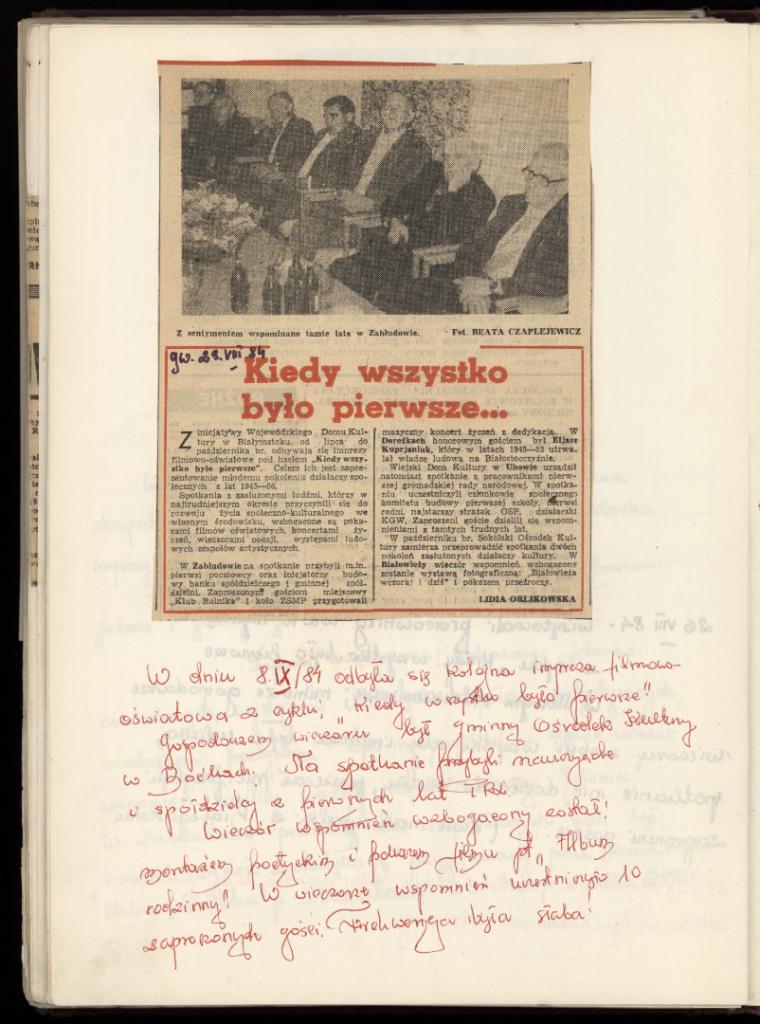 Z sentymentem wspominano tamte lata w Zabłudowie. Fot. BEATA CZAPLEJEWICZ
gw. 28.VIII 84
Kiedy wszystko
było pierwsze...
Z inicjatywy Wojewódzkiego Domu Kul-
tury w Białymstoku, od lipca do
października br. odbywają się imprezy
filmowo-oświatowe pod hasłem „Kiedy wszy-
stko było pierwsze". Celem ich jest zapre-
zentowanie młodemu pokoleniu działaczy spo-
łecznych z lat 1945—56.
Spotkania z zasłużonymi ludźmi, którzy w
najtrudniejszym okresie przyczynili się do
rozwoju życia społeczno-kulturalnego we
własnym środowisku, wzbogacone są poka-
zami filmów oświatowych, koncertami ży-
czeń, wieczorami poezji, występami ludo-
wych zespołów artystycznych.
W Zabłudowie na spotkanie przybyli m.in.
pierwsi pocztowcy oraz inicjatorzy budo-
wy banku spółdzielczego i gminnej spół-
dzielni. Zaproszonym gościom miejscowy
„Klub Rolnika" i koło ZSMP przygotowali
muzyczny koncert życzeń z dedykacją. W
Dorożkach honorowym gościem był Eljasz
Kuprjaniuk, który w latach 1945—52 utrwa-
lał władzę ludową na Białostocczyźnie.
Wiejski Dom Kultury w Uhowie urządził
natomiast spotkanie z pracownikami pierw-
szej gromadzkiej rady narodowej. W spotka-
niu uczestniczyli członkowie społecznego
komitetu budowy pierwszej szkoły, pierwsi
radni, najstarszy strażak OSP, działaczki
KGW. Zaproszeni goście dzielili się wspom-
nieniami z tamtych trudnych lat.
W październiku br. Sokólski Ośrodek Kul-
tury zamierza przeprowadzić spotkania dwóch
pokoleń zasłużonych działaczy kultury. W
Białowieży wieczór wspomnień wzbogacony
zostanie wystawą fotograficzną: „Białowieża
wczoraj i dziś" i pokazem przeźroczy.
LIDIA ORLIKOWSKA
W dniu 8.IX/84 odbyła się kolejna impreza filmowo-
oświatowa z cyklu; „Kiedy wszystko było pierwsze".
Gospodarzem wieczoru był Gminny Ośrodek Kultury
w Boćkach. Na spotkanie przybyli nauczyciele
i spółdzielcy z pierwszych lat PRL.
Wieczór wspomnień wzbogacony został:
montażem poetyckim i pokazem filmu pt „Album
rodzinny". W wieczorze wspomnień uczestniczyło 10
zaproszonych gości. Frekwencja była słaba!